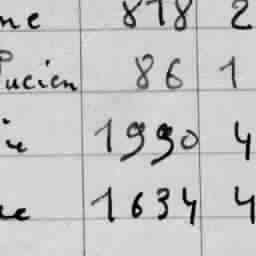 ne 878 2
Lucien 86 1
ie 1990 4
ne 1634 4